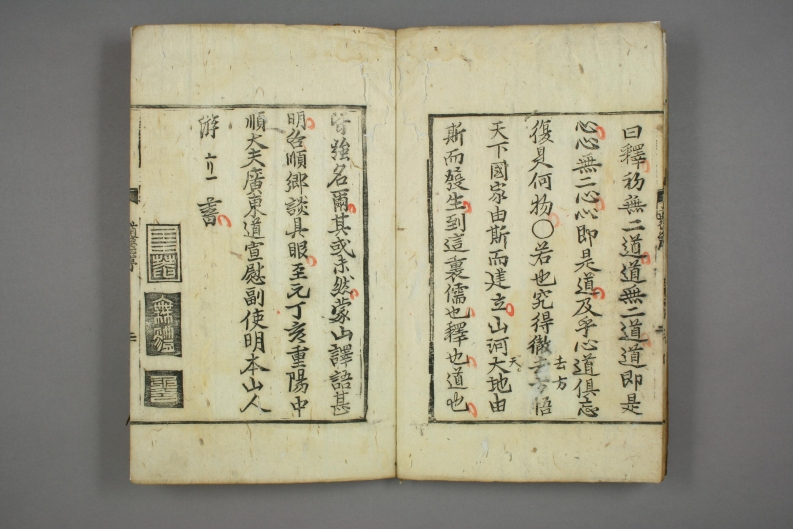 曰釋氏無二道道無二道道即是
心心無二心心即是道及乎心道俱忘
復是何物〇若也究得徹去方悟
去方
天下國家由斯而建立山河大地由
天
斯而發生到這裏儒也釋也道也
皆強名爾其或未然蒙山譯語甚
明台順鄉談具眼至元丁亥重陽中
順大夫廣東道宣慰副使明本山人
游立書